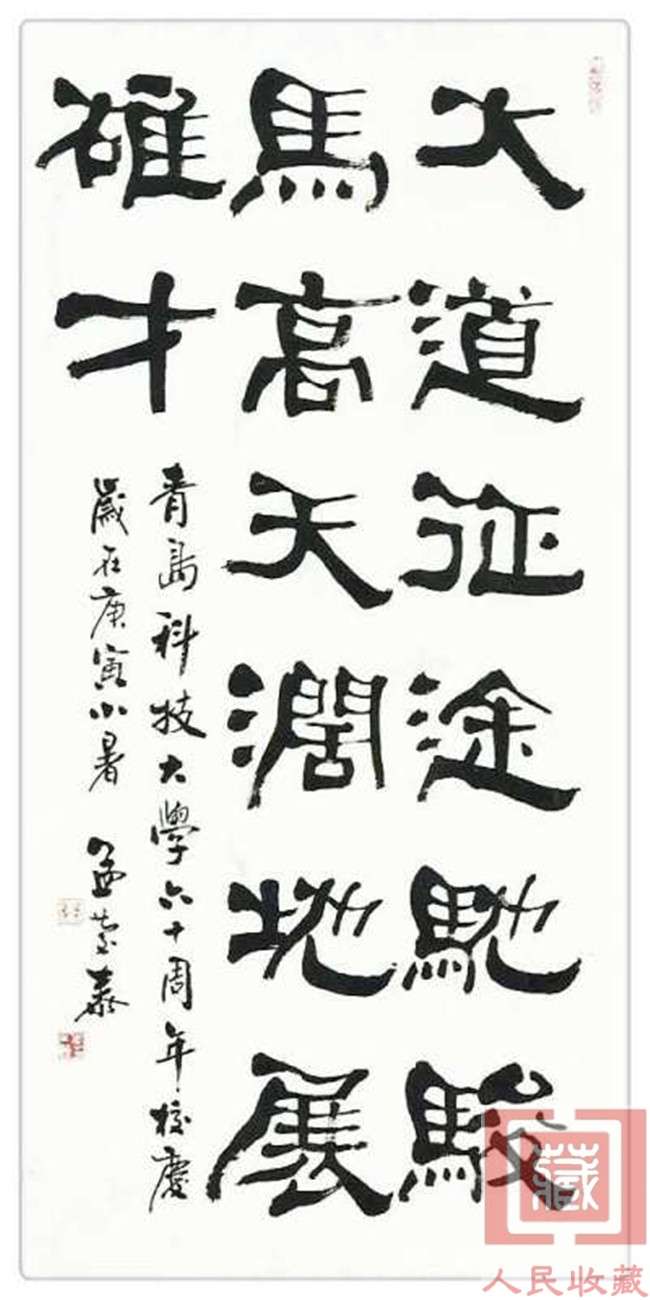 大道征途馳駿
馬高天濶地展
雄才
青島科技大學六十周年校慶
歲在庚寅小暑 孟慶泰
藏
人民收藏